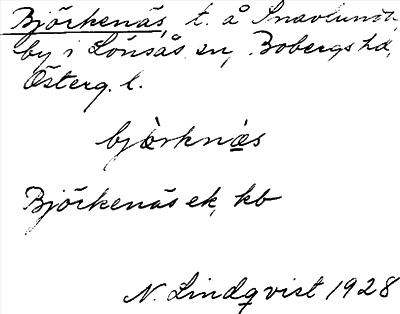 Björkenäs, t. å Snavlunda,
by i Lönsås sn, Bobergs hd,
Österg. l.
bjö̀rknæ̀s
Björkenäs ek, kb
N. Lindqvist 1928